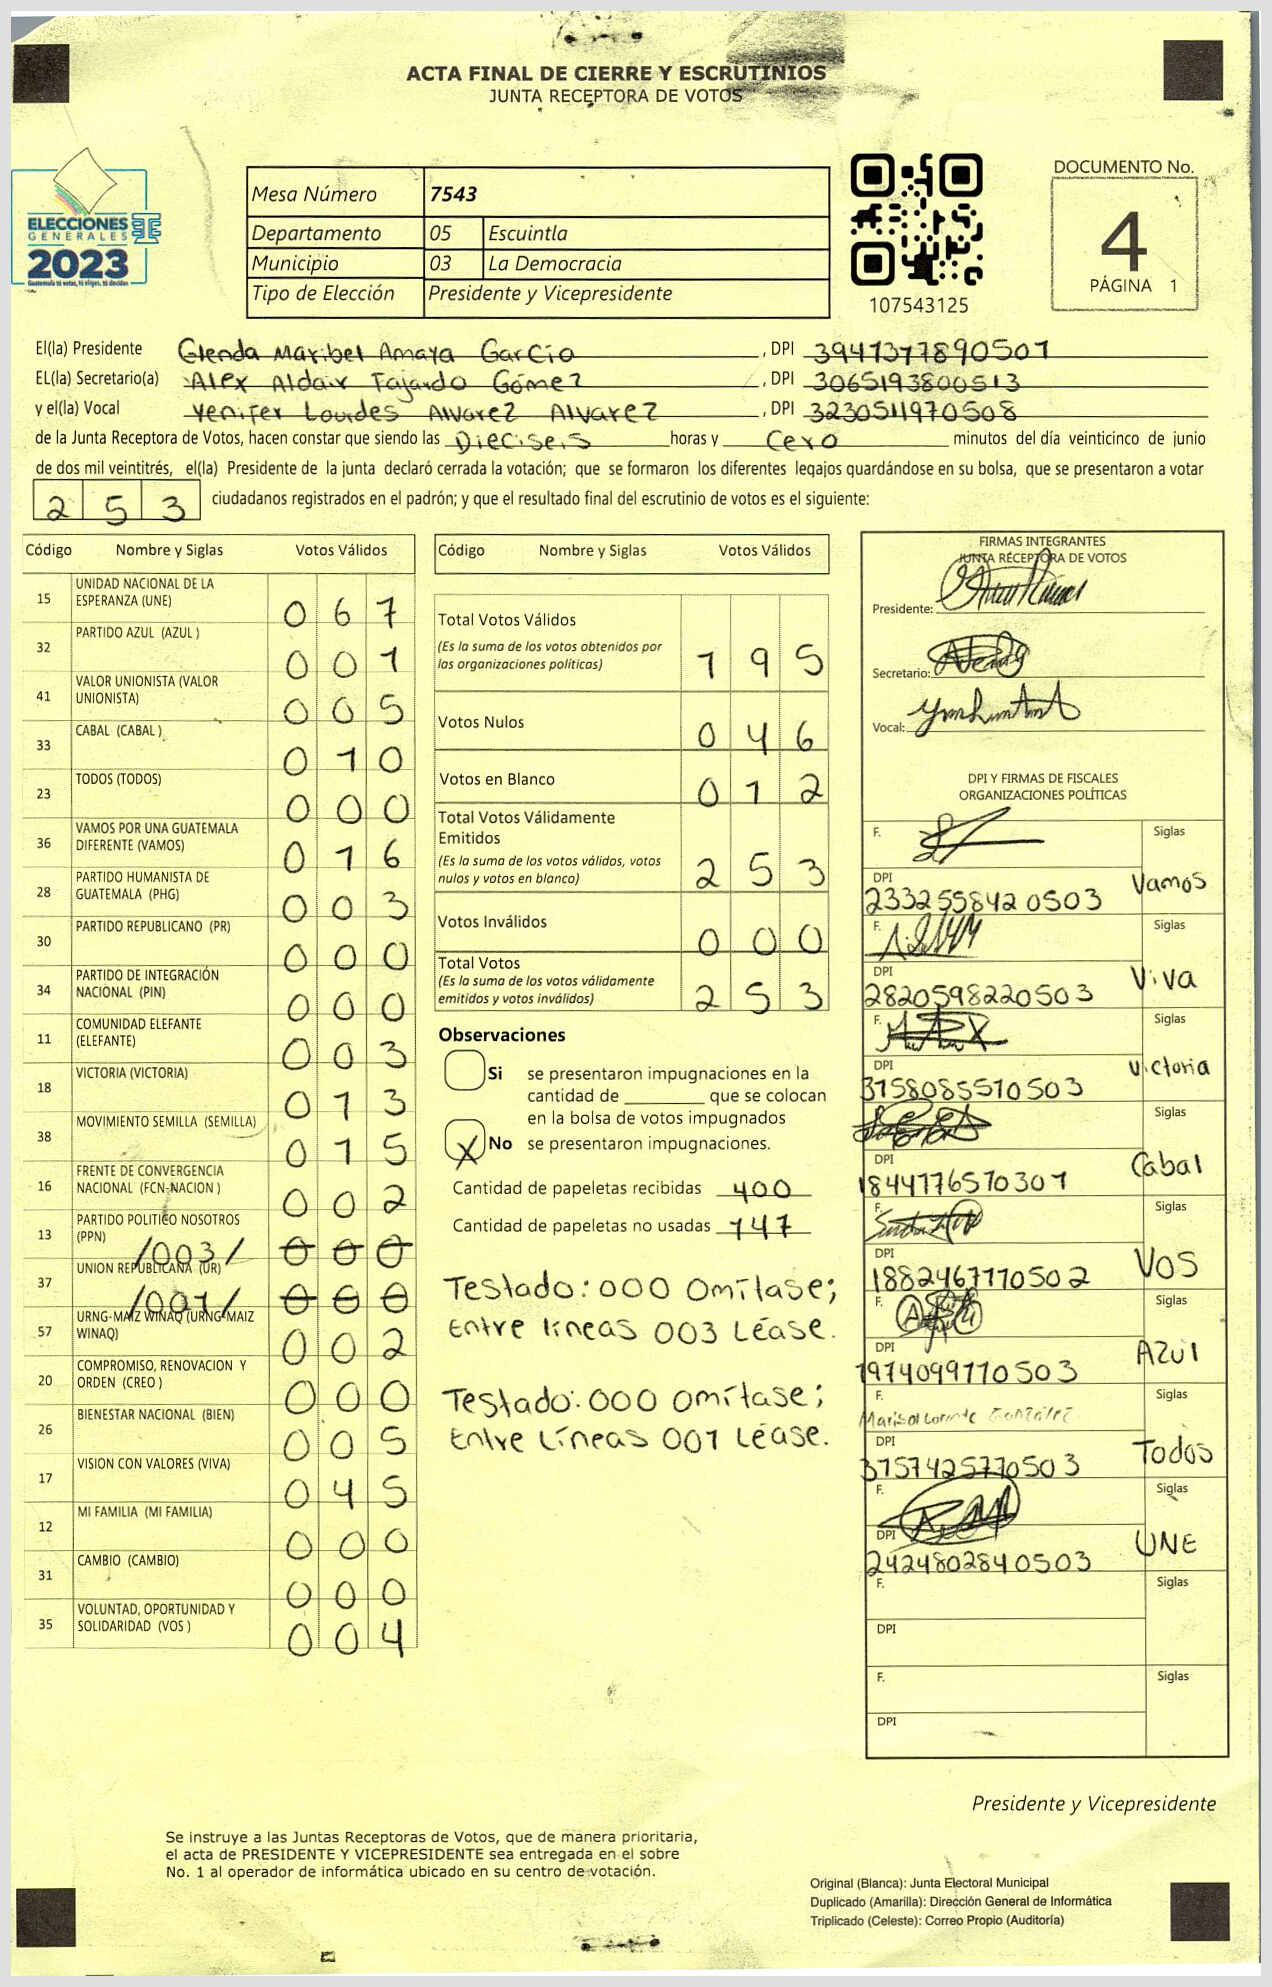 ACTA FINAL DE CIERRE Y ESCRUTINIOS
JUNTA RECEPTORA DE VOTOS
ELECCIONES
GENERALES
2023
Guatemala tú votas, tú eliges, tú decides
Mesa Número 7543
Departamento 05 Escuintla
Municipio 03 La Democracia
Tipo de Elección Presidente y Vicepresidente
107543125
DOCUMENTO No.
4
PÁGINA 1
El(la) Presidente Glenda Maribel Amaya García, DPI 3941377890501
EL(la) Secretario(a) Alex Aldair Fajardo Gómez, DPI 3065193800513
y el(la) Vocal Yenifer Lourdes Alvarez Alvarez, DPI 3230511970508
de la Junta Receptora de Votos, hacen constar que siendo las Dieciseis horas y Cero minutos del día veinticinco de junio
de dos mil veintitrés, el(la) Presidente de la junta declaró cerrada la votación; que se formaron los diferentes legajos guardándose en su bolsa, que se presentaron a votar
253 ciudadanos registrados en el padrón; y que el resultado final del escrutinio de votos es el siguiente:
Código Nombre y Siglas Votos Válidos
15 UNIDAD NACIONAL DE LA ESPERANZA (UNE) 067
32 PARTIDO AZUL (AZUL ) 001
41 VALOR UNIONISTA (VALOR UNIONISTA) 005
33 CABAL (CABAL ) 010
23 TODOS (TODOS) 000
36 VAMOS POR UNA GUATEMALA DIFERENTE (VAMOS) 016
28 PARTIDO HUMANISTA DE GUATEMALA (PHG) 003
30 PARTIDO REPUBLICANO (PR) 000
34 PARTIDO DE INTEGRACIÓN NACIONAL (PIN) 000
11 COMUNIDAD ELEFANTE (ELEFANTE) 003
18 VICTORIA (VICTORIA) 013
38 MOVIMIENTO SEMILLA (SEMILLA) 015
16 FRENTE DE CONVERGENCIA NACIONAL (FCN-NACION ) 002
13 PARTIDO POLITICO NOSOTROS (PPN) /003/ 000
37 UNION REPUBLICANA (UR) /001/ 000
57 URNG-MAIZ WINAQ (URNG-MAIZ WINAQ) 002
20 COMPROMISO, RENOVACION Y ORDEN (CREO ) 000
26 BIENESTAR NACIONAL (BIEN) 005
17 VISION CON VALORES (VIVA) 045
12 MI FAMILIA (MI FAMILIA) 000
31 CAMBIO (CAMBIO) 000
35 VOLUNTAD, OPORTUNIDAD Y SOLIDARIDAD (VOS ) 004
Código Nombre y Siglas Votos Válidos
Total Votos Válidos 195
(Es la suma de los votos obtenidos por
las organizaciones políticas)
Votos Nulos 046
Votos en Blanco 012
Total Votos Válidamente
Emitidos 253
(Es la suma de los votos válidos, votos
nulos y votos en blanco)
Votos Inválidos 000
Total Votos 253
(Es la suma de los votos válidamente
emitidos y votos inválidos)
Observaciones
Si se presentaron impugnaciones en la
cantidad de ________ que se colocan
en la bolsa de votos impugnados
X No se presentaron impugnaciones.
Cantidad de papeletas recibidas 400
Cantidad de papeletas no usadas 147
Testado: 000 Omítase;
Entre líneas 003 Léase.
Testado: 000 Omítase;
Entre Líneas 001 Léase.
FIRMAS INTEGRANTES
JUNTA RECEPTORA DE VOTOS
Presidente:
Secretario:
Vocal:
DPI Y FIRMAS DE FISCALES
ORGANIZACIONES POLÍTICAS
F. Siglas
DPI 2332555842 0503 Vamos
F. Siglas
DPI 2820598220503 Viva
F. Siglas
DPI 3758085510503 Victoria
F. Siglas
DPI 1844776570301 Cabal
F. Siglas
DPI 1882467770502 VOS
F. Siglas
DPI 1974099770503 Azul
F. Marisol González Siglas
DPI 3757425770503 Todos
F. Siglas
DPI 2424802840503 UNE
F. Siglas
DPI
F. Siglas
DPI
Presidente y Vicepresidente
Se instruye a las Juntas Receptoras de Votos, que de manera prioritaria,
el acta de PRESIDENTE Y VICEPRESIDENTE sea entregada en el sobre
No. 1 al operador de informática ubicado en su centro de votación.
Original (Blanca): Junta Electoral Municipal
Duplicado (Amarilla): Dirección General de Informática
Triplicado (Celeste): Correo Propio (Auditoría)